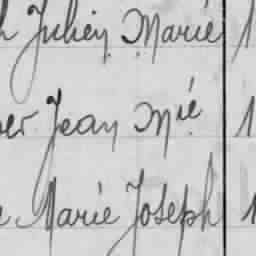 h Julien Marie 1
er Jean Mie 1
e Marie Joseph 1